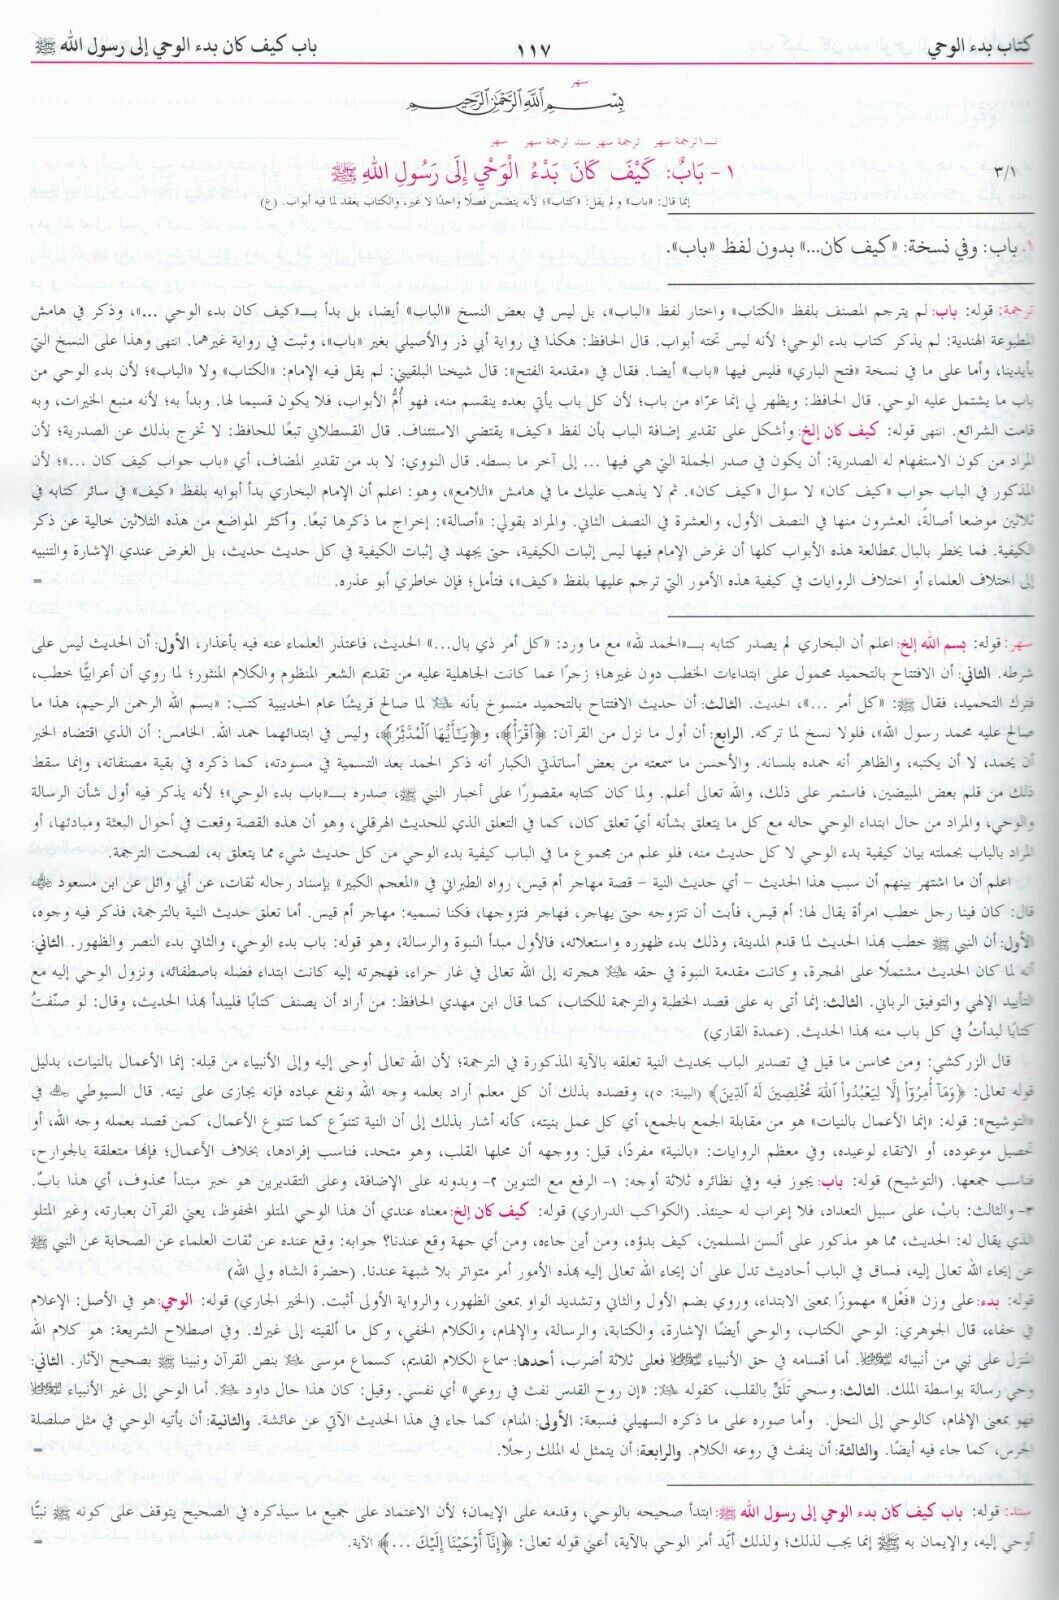 كتاب بدء الوحي ١١٧ باب كيف كان بدء الوحي إلى رسول الله ﷺ
سهر
بِسْمِ اللَّهِ الرَّحْمَٰنِ الرَّحِيمِ
نسـ ١ ترجمة سهر ترجمة سهر سند ترجمة سهر سهر
٣/١ ١- بَابٌ: كَيْفَ كَانَ بَدْءُ الْوَحْيِ إِلَى رَسُولِ اللهِ ﷺ
إنما قال: «باب» ولم يقل: «كتاب»؛ لأنه يتضمن فصلًا واحدًا لا غير، والكتاب يعقد لما فيه أبواب. (ع)
١. باب: وفي نسخة: «كيف كان...» بدون لفظ «باب».
ترجمة: قوله: باب: لم يترجم المصنف بلفظ «الكتاب» واختار لفظ «الباب»، بل ليس في بعض النسخ «الباب» أيضا، بل بدأ بـ«كيف كان بدء الوحي ...»، وذكر في هامش
المطبوعة الهندية: لم يذكر كتاب بدء الوحي؛ لأنه ليس تحته أبواب. قال الحافظ: هكذا في رواية أبي ذر والأصيلي بغير «باب»، وثبت في رواية غيرهما. انتهى وهذا على النسخ التي
بأيدينا، وأما على ما في نسخة «فتح الباري» فليس فيها «باب» أيضا. فقال في «مقدمة الفتح»: قال شيخنا البلقيني: لم يقل فيه الإمام: «الكتاب» ولا «الباب»؛ لأن بدء الوحي من
باب ما يشتمل عليه الوحي. قال الحافظ: ويظهر لي إنما عرّاه من باب؛ لأن كل باب يأتي بعده ينقسم منه، فهو أُمُّ الأبواب، فلا يكون قسيما لها. وبدأ به؛ لأنه منبع الخيرات، وبه
قامت الشرائع. انتهى قوله: كيف كان إلخ: وأشكل على تقدير إضافة الباب بأن لفظ «كيف» يقتضي الاستئناف. قال القسطلاني تبعًا للحافظ: لا تخرج بذلك عن الصدرية؛ لأن
المراد من كون الاستفهام له الصدرية: أن يكون في صدر الجملة التي هي فيها ... إلى آخر ما بسطه. قال النووي: لا بد من تقدير المضاف، أي «باب جواب كيف كان ...»؛ لأن
المذكور في الباب جواب «كيف كان» لا سؤال «كيف كان». ثم لا يذهب عليك ما في هامش «اللامع»، وهو: اعلم أن الإمام البخاري بدأ أبوابه بلفظ «كيف» في سائر كتابه في
ثلاثين موضعا أصالةً، العشرون منها في النصف الأول، والعشرة في النصف الثاني. والمراد بقولي: «أصالة»: إخراج ما ذكرها تبعًا. وأكثر المواضع من هذه الثلاثين خالية عن ذكر
الكيفية. فما يخطر بالبال بمطالعة هذه الأبواب كلها أن غرض الإمام فيها ليس إثبات الكيفية، حتى يجهد في إثبات الكيفية في كل حديث حديث، بل الغرض عندي الإشارة والتنبيه
إلى اختلاف العلماء أو اختلاف الروايات في كيفية هذه الأمور التي ترجم عليها بلفظ «كيف»، فتأمل؛ فإن خاطري أبو عذره. =
سهر: قوله: بسم الله إلخ: اعلم أن البخاري لم يصدر كتابه بـ«الحمد لله» مع ما ورد: «كل أمر ذي بال...» الحديث، فاعتذر العلماء عنه فيه بأعذار، الأول: أن الحديث ليس على
شرطه. الثاني: أن الافتتاح بالتحميد محمول على ابتداءات الخطب دون غيرها؛ زجرًا عما كانت الجاهلية عليه من تقديم الشعر المنظوم والكلام المنثور؛ لما روي أن أعرابيًّا خطب،
فترك التحميد، فقال ﷺ: «كل أمر ...»، الحديث. الثالث: أن حديث الافتتاح بالتحميد منسوخ بأنه ﵇ لما صالح قريشًا عام الحديبية كتب: «بسم الله الرحمن الرحيم، هذا ما
صالح عليه محمد رسول الله»، فلولا نسخ لما تركه. الرابع: أن أول ما نزل من القرآن: ﴿ٱقْرَأْ﴾، و﴿يَـٰٓأَيُّهَا ٱلْمُدَّثِّرُ﴾، وليس في ابتدائهما حمد الله. الخامس: أن الذي اقتضاه الخبر
أن يحمد، لا أن يكتبه، والظاهر أنه حمده بلسانه. والأحسن ما سمعته من بعض أساتذتي الكبار أنه ذكر الحمد بعد التسمية في مسودته، كما ذكره في بقية مصنفاته، وإنما سقط
ذلك من قلم بعض المبيضين، فاستمر على ذلك، والله تعالى أعلم. ولما كان كتابه مقصورًا على أخبار النبي ﷺ، صدره بـ«باب بدء الوحي»؛ لأنه يذكر فيه أول شأن الرسالة
والوحي، والمراد من حال ابتداء الوحي حاله مع كل ما يتعلق بشأنه أيّ تعلق كان، كما في التعلق الذي للحديث الهرقلي، وهو أن هذه القصة وقعت في أحوال البعثة ومبادئها، أو
المراد بالباب بجملته بيان كيفية بدء الوحي لا كل حديث منه، فلو علم من مجموع ما في الباب كيفية بدء الوحي من كل حديث شيء مما يتعلق به، لصحت الترجمة.
اعلم أن ما اشتهر بينهم أن سبب هذا الحديث – أي حديث النية – قصة مهاجر أم قيس، رواه الطبراني في «المعجم الكبير» بإسناد رجاله ثقات، عن أبي وائل عن ابن مسعود ﵁
قال: كان فينا رجل خطب امرأة يقال لها: أم قيس، فأبت أن تتزوجه حتى يهاجر، فهاجر فتزوجها، فكنا نسميه: مهاجر أم قيس. أما تعلق حديث النية بالترجمة، فذكر فيه وجوه،
الأول: أن النبي ﷺ خطب بهذا الحديث لما قدم المدينة، وذلك بدء ظهوره واستعلائه، فالأول مبدأ النبوة والرسالة، وهو قوله: باب بدء الوحي، والثاني بدء النصر والظهور. الثاني:
أنه لما كان الحديث مشتملًا على الهجرة، وكانت مقدمة النبوة في حقه ﵇ هجرته إلى الله تعالى في غار حراء، فهجرته إليه كانت ابتداء فضله باصطفائه، ونزول الوحي إليه مع
التأييد الإلهي والتوفيق الرباني. الثالث: إنما أتى به على قصد الخطبة والترجمة للكتاب، كما قال ابن مهدي الحافظ: من أراد أن يصنف كتابًا فليبدأ بهذا الحديث، وقال: لو صنّفتُ
كتابًا لبدأتُ في كل باب منه بهذا الحديث. (عمدة القاري)
قال الزركشي: ومن محاسن ما قيل في تصدير الباب بحديث النية تعلقه بالآية المذكورة في الترجمة؛ لأن الله تعالى أوحى إليه وإلى الأنبياء من قبله: إنما الأعمال بالنيات، بدليل
قوله تعالى: ﴿وَمَآ أُمِرُوٓاْ إِلَّا لِيَعْبُدُواْ ٱللَّهَ مُخْلِصِينَ لَهُ ٱلدِّينَ﴾ (البينة: ٥)، وقصده بذلك أن كل معلم أراد بعلمه وجه الله ونفع عباده فإنه يجازى على نيته. قال السيوطي ﵀ في
«التوشيح»: قوله: «إنما الأعمال بالنيات» هو من مقابلة الجمع بالجمع، أي كل عمل بنيته، كأنه أشار بذلك إلى أن النية تتنوّع كما تتنوع الأعمال، كمن قصد بعمله وجه الله، أو
تحصيل موعوده، أو الاتقاء لوعيده، وفي معظم الروايات: «بالنية» مفردًا، قيل: ووجهه أن محلها القلب، وهو متحد، فناسب إفرادها، بخلاف الأعمال؛ فإنها متعلقة بالجوارح،
فناسب جمعها. (التوشيح) قوله: باب: يجوز فيه وفي نظائره ثلاثة أوجه: ١- الرفع مع التنوين ٢- وبدونه على الإضافة، وعلى التقديرين هو خبر مبتدأ محذوف، أي هذا بابٌ.
٣- والثالث: بابْ، على سبيل التعداد، فلا إعراب له حينئذ. (الكواكب الدراري) قوله: كيف كان إلخ: معناه عندي أن هذا الوحي المتلو المحفوظ، يعني القرآن بعبارته، وغير المتلو
الذي يقال له: الحديث، مما هو مذكور على ألسن المسلمين، كيف بدؤه، ومن أين جاءه، ومن أي جهة وقع عندنا؟ جوابه: وقع عنده عن ثقات العلماء عن الصحابة عن النبي ﷺ
عن إيحاء الله تعالى إليه، فساق في الباب أحاديث تدل على أن إيحاء الله تعالى إليه بهذه الأمور أمر متواتر بلا شبهة عندنا. (حضرة الشاه ولي الله)
قوله: بدء: على وزن «فَعْل» مهموزًا بمعنى الابتداء، وروي بضم الأول والثاني وتشديد الواو بمعنى الظهور، والرواية الأولى أثبت. (الخير الجاري) قوله: الوحي: هو في الأصل: الإعلام
في خفاء، قال الجوهري: الوحي الكتاب، والوحي أيضًا الإشارة، والكتابة، والرسالة، والإلهام، والكلام الخفي، وكل ما ألقيته إلى غيرك. وفي اصطلاح الشريعة: هو كلام الله
المنزل على نبي من أنبيائه ﵈. أما أقسامه في حق الأنبياء ﵈ فعلى ثلاثة أضرب، أحدها: سماع الكلام القديم، كسماع موسى ﵇ بنص القرآن ونبينا ﷺ بصحيح الآثار. الثاني:
وحي رسالة بواسطة الملك. الثالث: وسحي تَلَقٍّ بالقلب، كقوله ﵇: «إن روح القدس نفث في روعي» أي نفسي. وقيل: كان هذا حال داود ﵇. أما الوحي إلى غير الأنبياء ﵈
فهو بمعنى الإلهام، كالوحي إلى النحل. وأما صوره على ما ذكره السهيلي فسبعة: الأولى: المنام، كما جاء في هذا الحديث الآتي عن عائشة. والثانية: أن يأتيه الوحي في مثل صلصلة
الجرس، كما جاء فيه أيضًا. والثالثة: أن ينفث في روعه الكلام. والرابعة: أن يتمثل له الملك رجلًا. =
سند: قوله: باب كيف كان بدء الوحي إلى رسول الله ﷺ: ابتدأ صحيحه بالوحي، وقدمه على الإيمان؛ لأن الاعتماد على جميع ما سيذكره في الصحيح يتوقف على كونه ﷺ نبيًّا
أوحي إليه، والإيمان به ﷺ إنما يجب لذلك؛ ولذلك أيّد أمر الوحي بالآية، أعني قوله تعالى: ﴿إِنَّآ أَوْحَيْنَآ إِلَيْكَ ...﴾ الآية. =